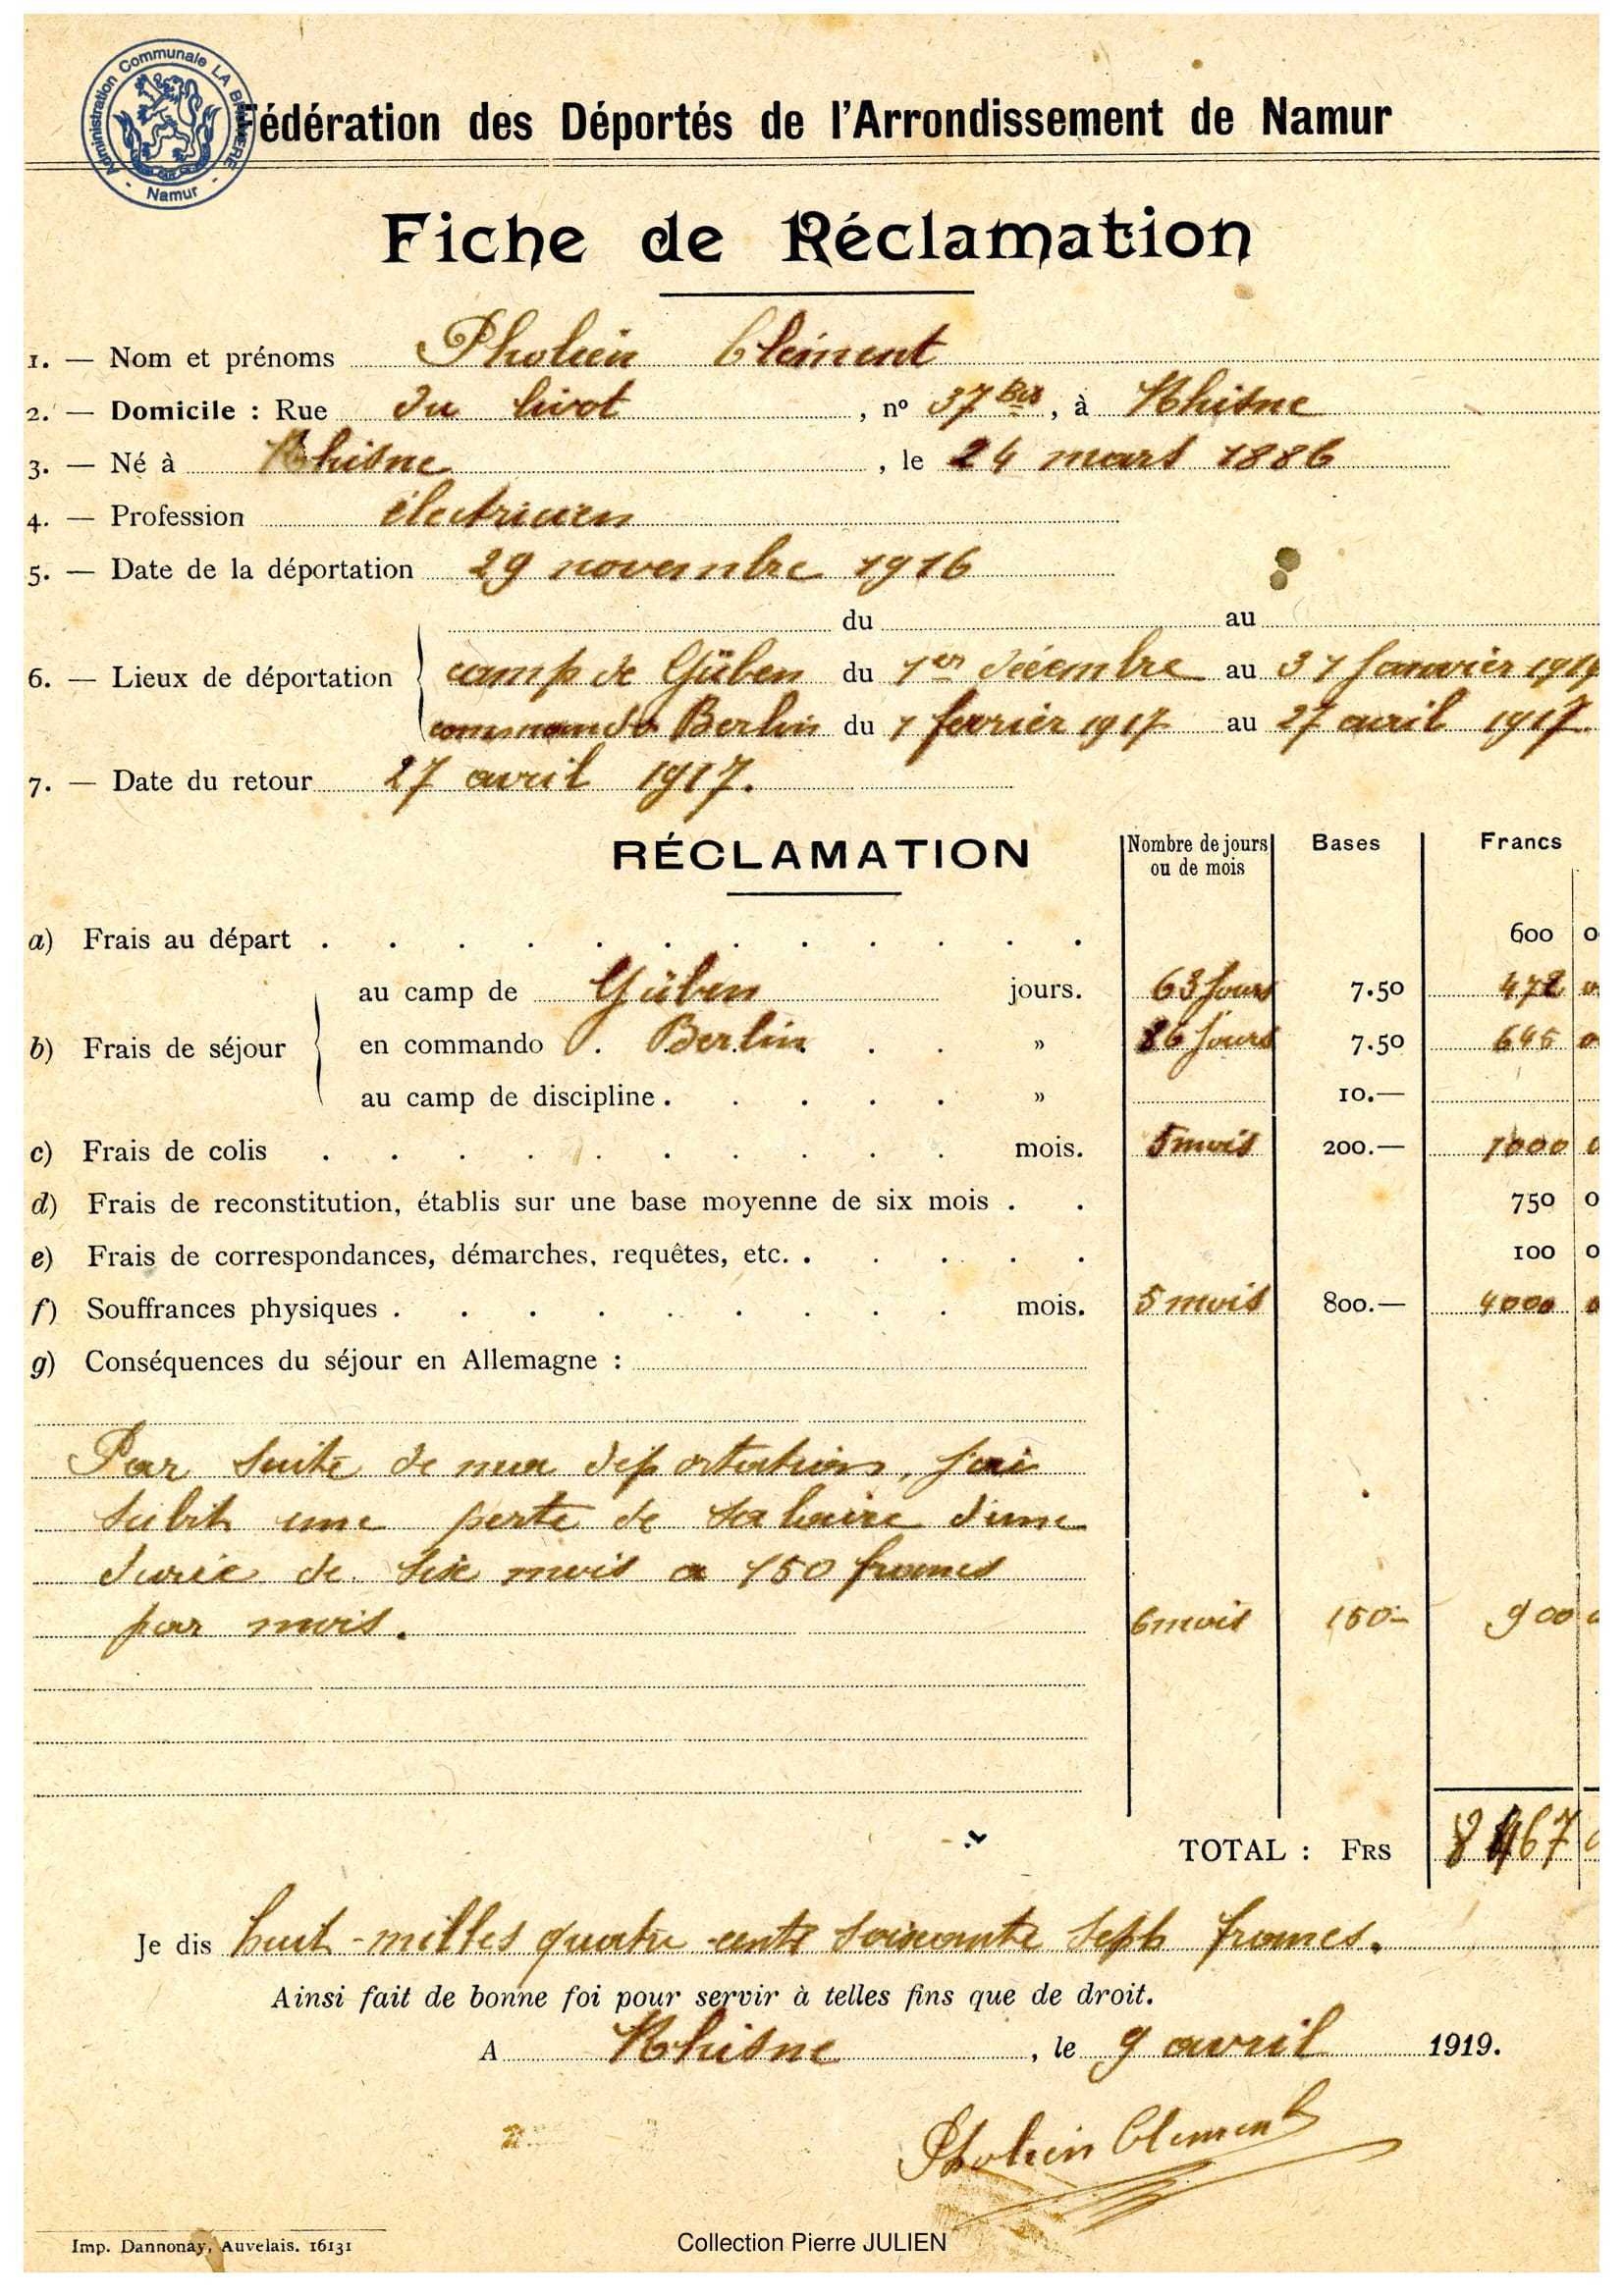 Administration Communale LA BRUYERE
- Namur -
Fédération des Déportés de l'Arrondissement de Namur
Fiche de Réclamation
1. — Nom et prénoms Pholien Clément
2. — Domicile : Rue du , nº 37 Bis , à Rhisne
3. — Né à Rhisne , le 24 mars 1886
4. — Profession électricien
5. — Date de la déportation 29 novembre 1916
du au
6. — Lieux de déportation camp de Güben du 1er décembre au 31 Janvier
commando Berlin du 1 fevrier 1917 au 27 avril 1917
7. — Date du retour 27 avril 1917.
RÉCLAMATION Nombre de jours ou de mois Bases Francs
a) Frais au départ . . . . . . . . . . . . 600 0
au camp de Güben jours. 63 Jours 7.50 472
b) Frais de séjour en commando . Berlin . . » 86 Jours 7.50 645
au camp de discipline . . . . . » 10.—
c) Frais de colis . . . . . . . . . . mois. 5 mois 200.— 1000
d) Frais de reconstitution, établis sur une base moyenne de six mois . . 750 0
e) Frais de correspondances, démarches, requêtes, etc. . . . . . 100 0
f) Souffrances physiques . . . . . . . . . mois. 5 mois 800.— 4000
g) Conséquences du séjour en Allemagne :
Par suite de ma déportation, j'ai
subit une perte de salaire d'une
durée de six mois a 150 francs
par mois. 6 mois 150.- 900
TOTAL : FRS 8467
Je dis huit-milles quatre cents soixante sept francs.
Ainsi fait de bonne foi pour servir à telles fins que de droit.
A Rhisne , le 9 avril 1919.
Pholien Clement
Imp. Dannonay, Auvelais. 16131
Collection Pierre JULIEN